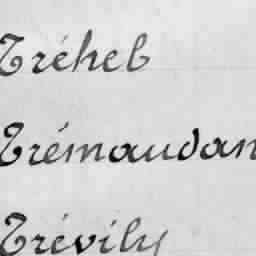 Tréheb
Trémaudan
Trévily